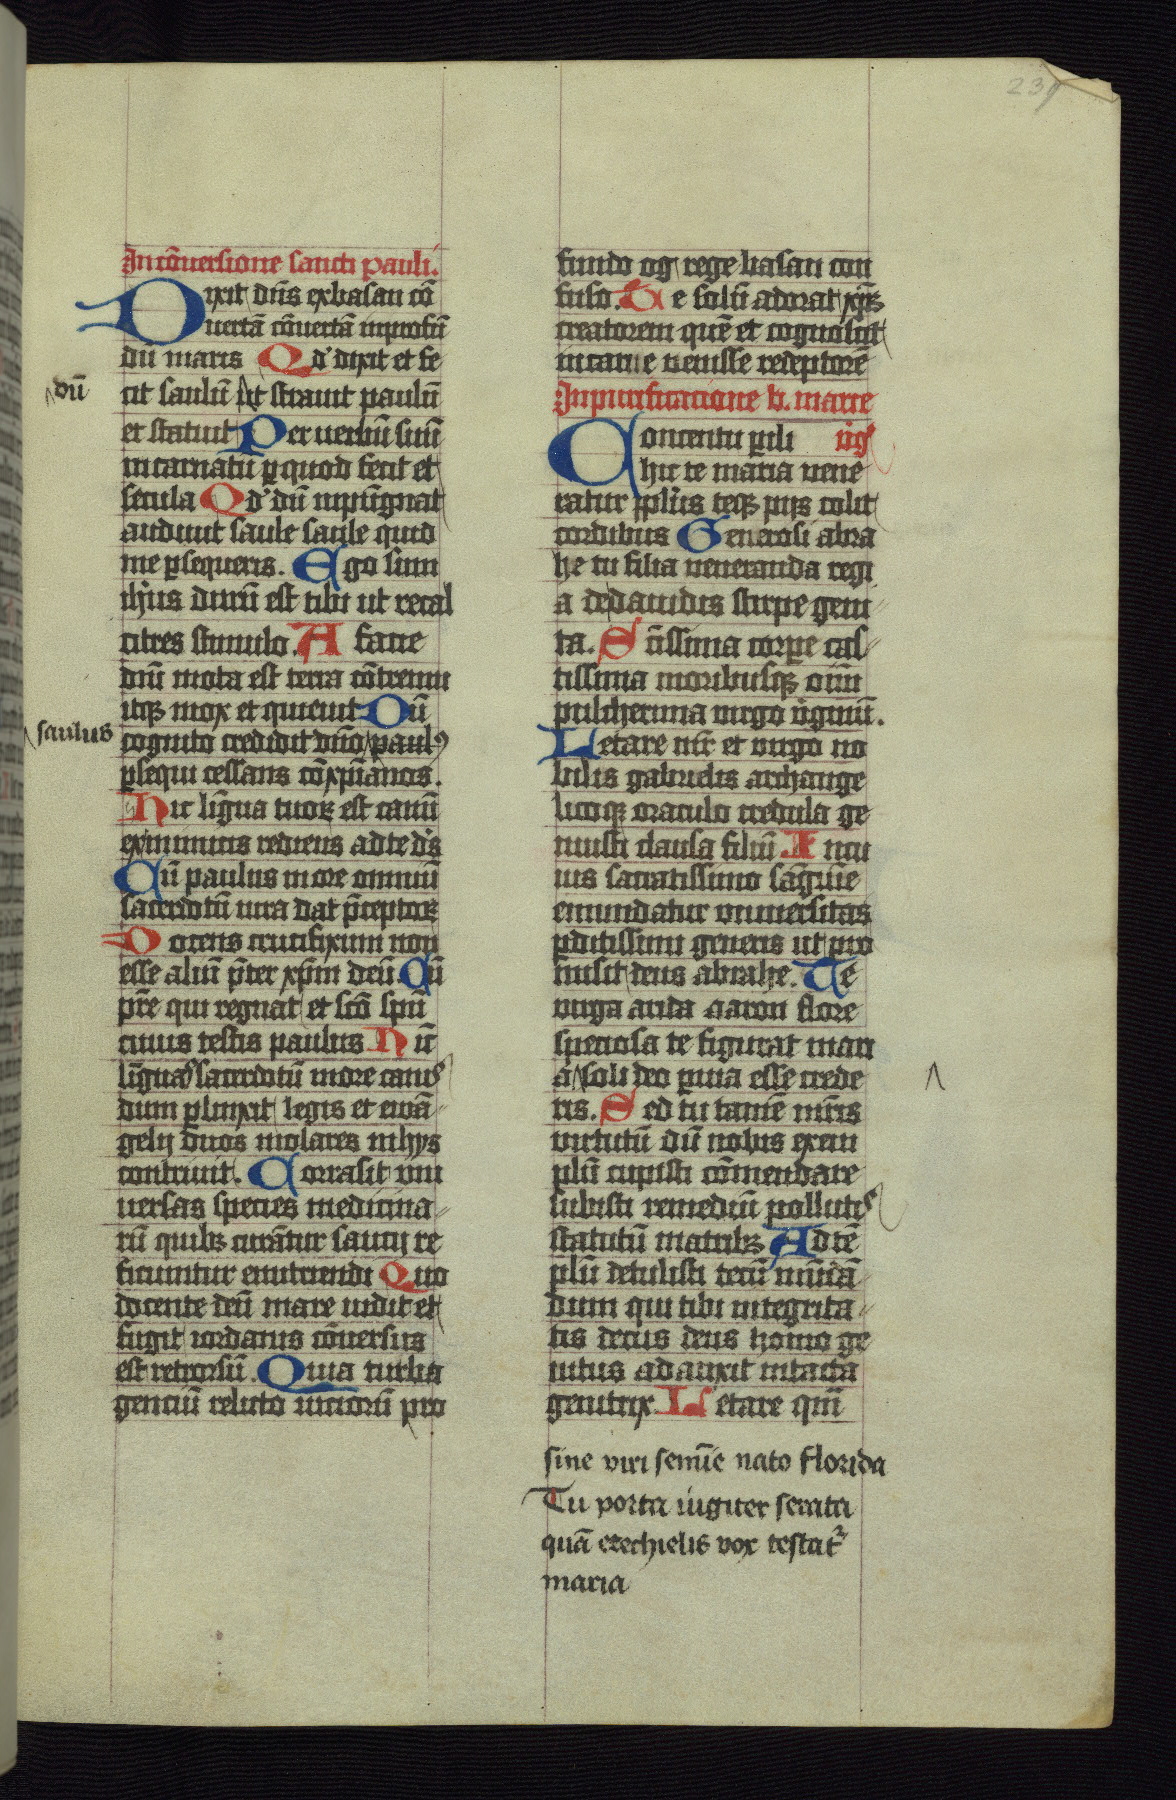 239
In cōuersione sancti pauli.
Dixit dn̄s ex basan cō
uertā cōuertā in profū
dū maris Qd' dixit et fe
dū
cit saulū ut strauit paulū
et statuit Per uerbū suū
incarnatū p quod fecit et
secula Qd' dū inpūgnat
audiuit saule saule quid
me psequeris. Ego sum
ih̄us durū est tibi ut recal
citres stimulo. A facie
dn̄i mota est terra cōtremu
itqꝫ mox et quieuit Dū
saulus
cognito credidit dn̄o paulꝰ
psequi cessans cōxp̄ianos.
Hic lingua tuoꝝ est canū
ex inimicis rediens ad te ds̄
Cū paulus in ore omniū
sacerdotū iura dat p̄ceptoꝝ
Docens crucifixum non
esse aliū p̄ter xp̄m deū Cū
pr̄e qui regnat et scō spū
cuius testis paulus Hic
linguaꝰ sacerdotū more canis
dum plinxit legis et ewā
gelij duos molares in hijs
contriuit. Corrasit vni
uersas species medicina
rū quibꝫ curātur saucij re
ficiuntur enutriendi Quo
docente deū mare uidit et
fugit iordanis cōuersus
est retrorsū. Quia turba
genciū reluto uiciorū pro
fundo og rege basan con
fuso. Te solū adorat xp̄e
creatorem quē et cognoscit
in carne uenisse redeptorē
In purificacione b. marie
Concentu pili ũg
hic te maria vene
ratur ppl̄us teqꝫ pijs colit
cordibus Generosi abra
he tu filia ueneranda regi
a de dauidis stirpe geni
ta. Sc̄issima corpe cas
tissima moribusqꝫ oīm
pulcherrima uirgo ũginū.
Letare mr̄ et uirgo no
bilis gabrielis archange
licoqꝫ oraculo credula ge
nuisti clausa filiū In cu
ius sacratissimo sāguīe
emundatur vniuersitas
pditissimi generis ut pro
misit deus abrahe. Te
uirga arida aaron flore
speciosa te figurat mari
a soli deo peruia esse crede
ris. Sed tu tamē matris
uirtutū dū nobis exem
plū cupisti cōmendare
subisti remediū pollutis
statutū matribꝫ Ad tē
plū detulisti tecū mūdā
dum qui tibi integrita
tis decus deus homo ge
nitus adauxit intacta
genitrix Letare qm̄
sine viri semīe nato florida
Tu porta iugiter serata
quā ezechielis vox testatr̄
maria